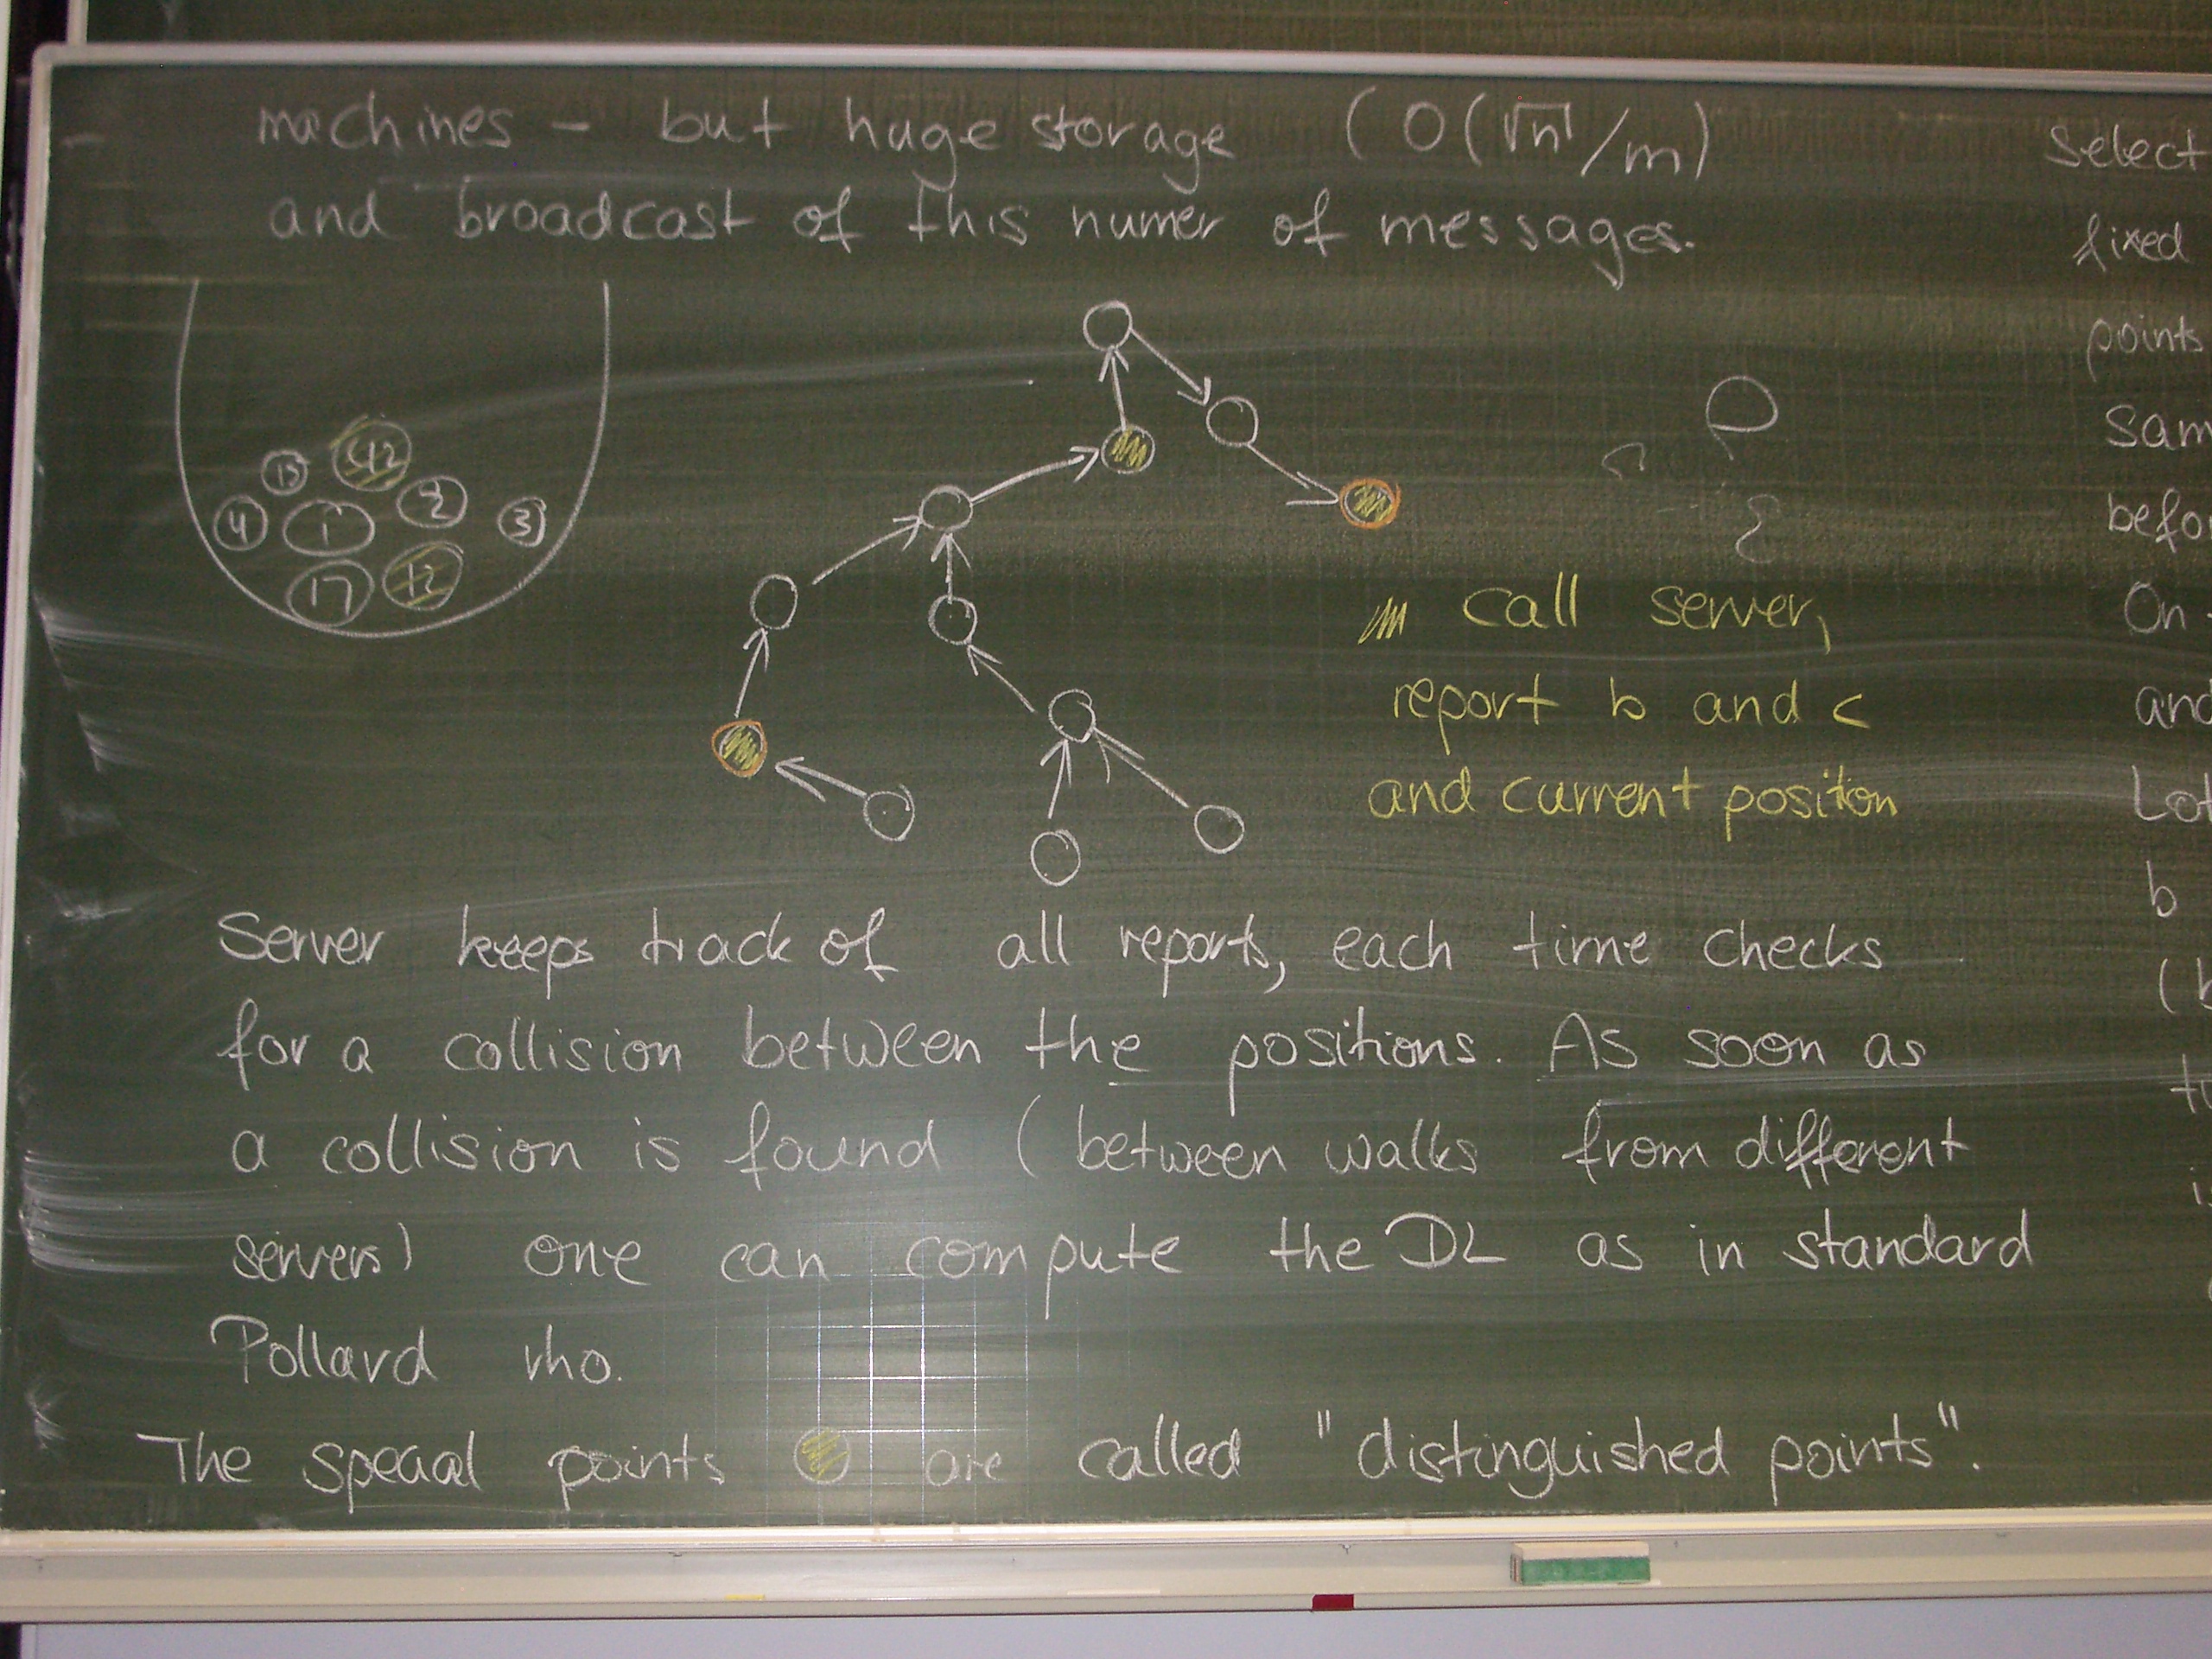 machines – but huge storage (O(√n/m)
and broadcast of this numer of messages.
13 42
4 1 2 3
17 12
call server,
report b and c
and current position
Server keeps track of all reports, each time checks
for a collision between the positions. As soon as
a collision is found (between walks from different
servers) one can compute the DL as in standard
Pollard rho.
The special points are called "distinguished points".
Select
fixed
points
sam
befo
On
and
Lot
b